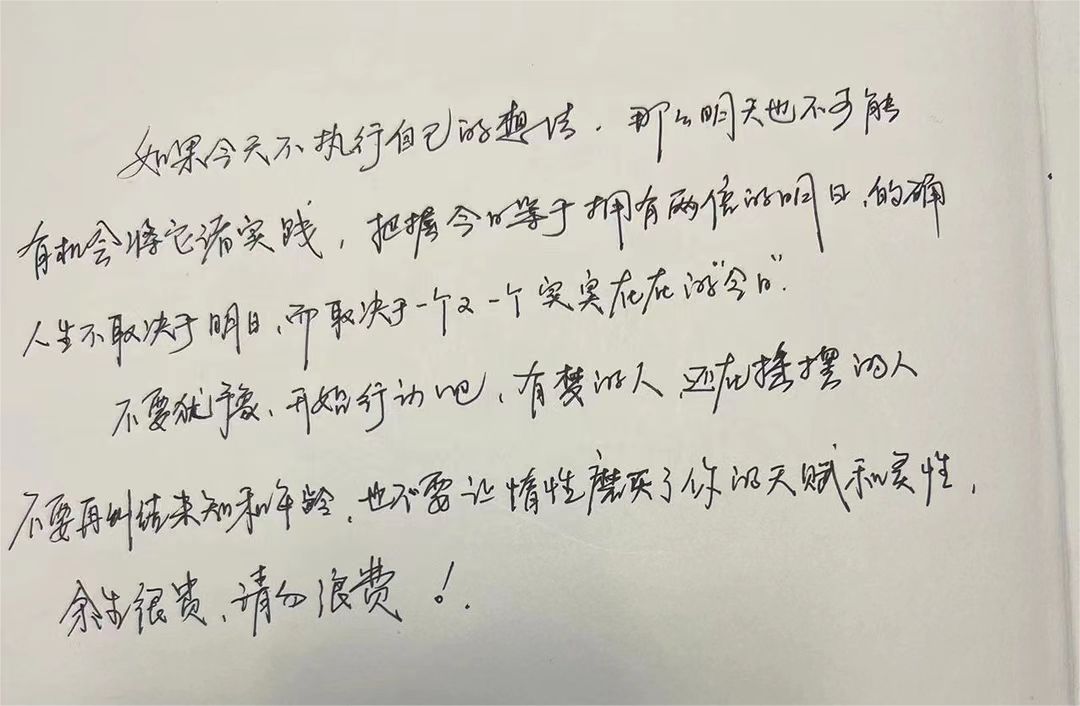 如果今天不执行自己的想法,那么明天也不可能
有机会将它诸实践,把握今日等于拥有两倍的明日,的确
人生不取决于明日,而取决于一个又一个实实在在的"今日".
不要犹豫、开始行动吧,有梦的人,还在摇摆的人
不要再纠结未知和年龄,也不要让惰性磨灭了你的天赋和灵性,
余生很贵,请勿浪费!.